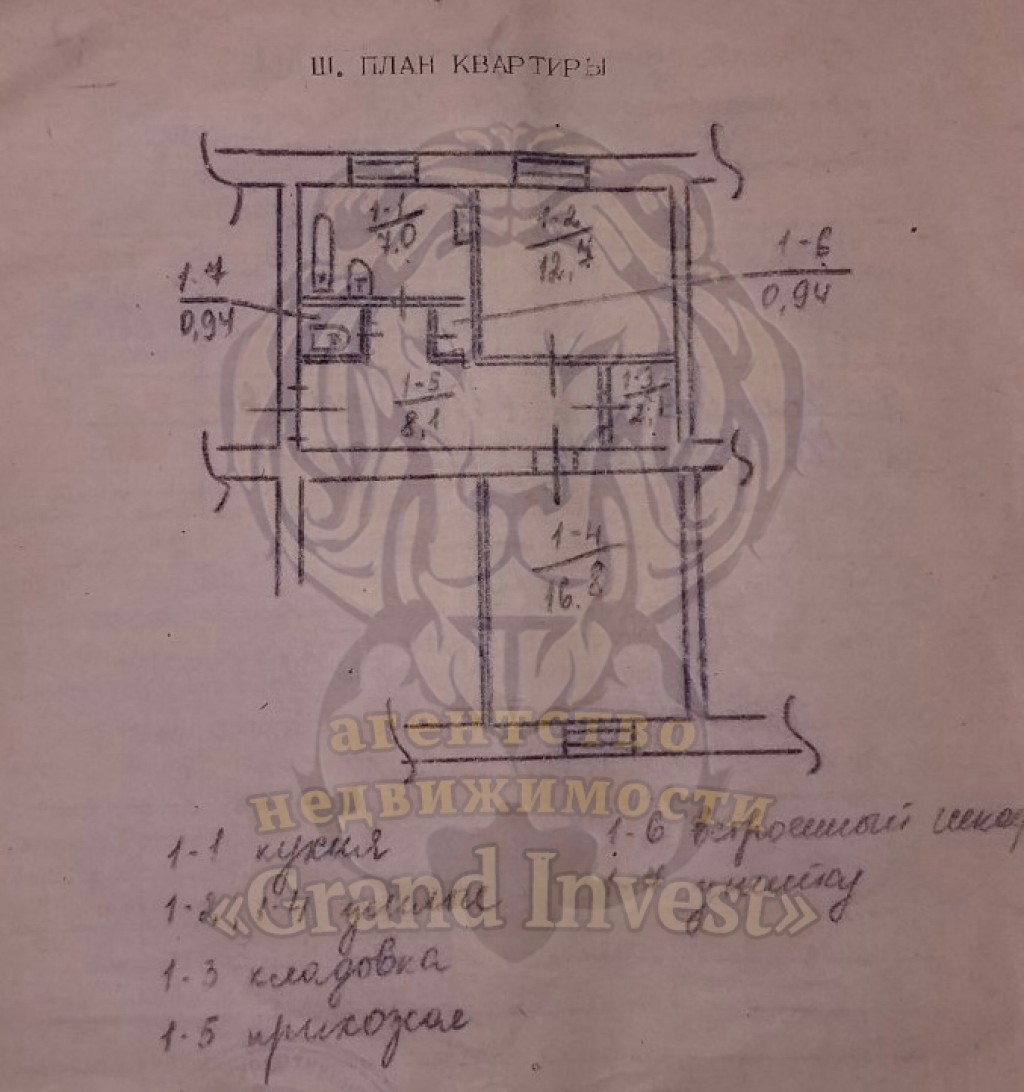 Ш. ПЛАН КВАРТИРЫ
1-1
7,0
1-2
12,7
1-6
0,94
1-7
0,94
1-5
8,1
1-3
2,1
1-4
16.8
агентство
недвижимости
«Grand Invest»
1-1 кухня
1-2, 1-4 жилые
1-3 кладовка
1-5 прихожая
1-6 встроенный шкаф
1-7